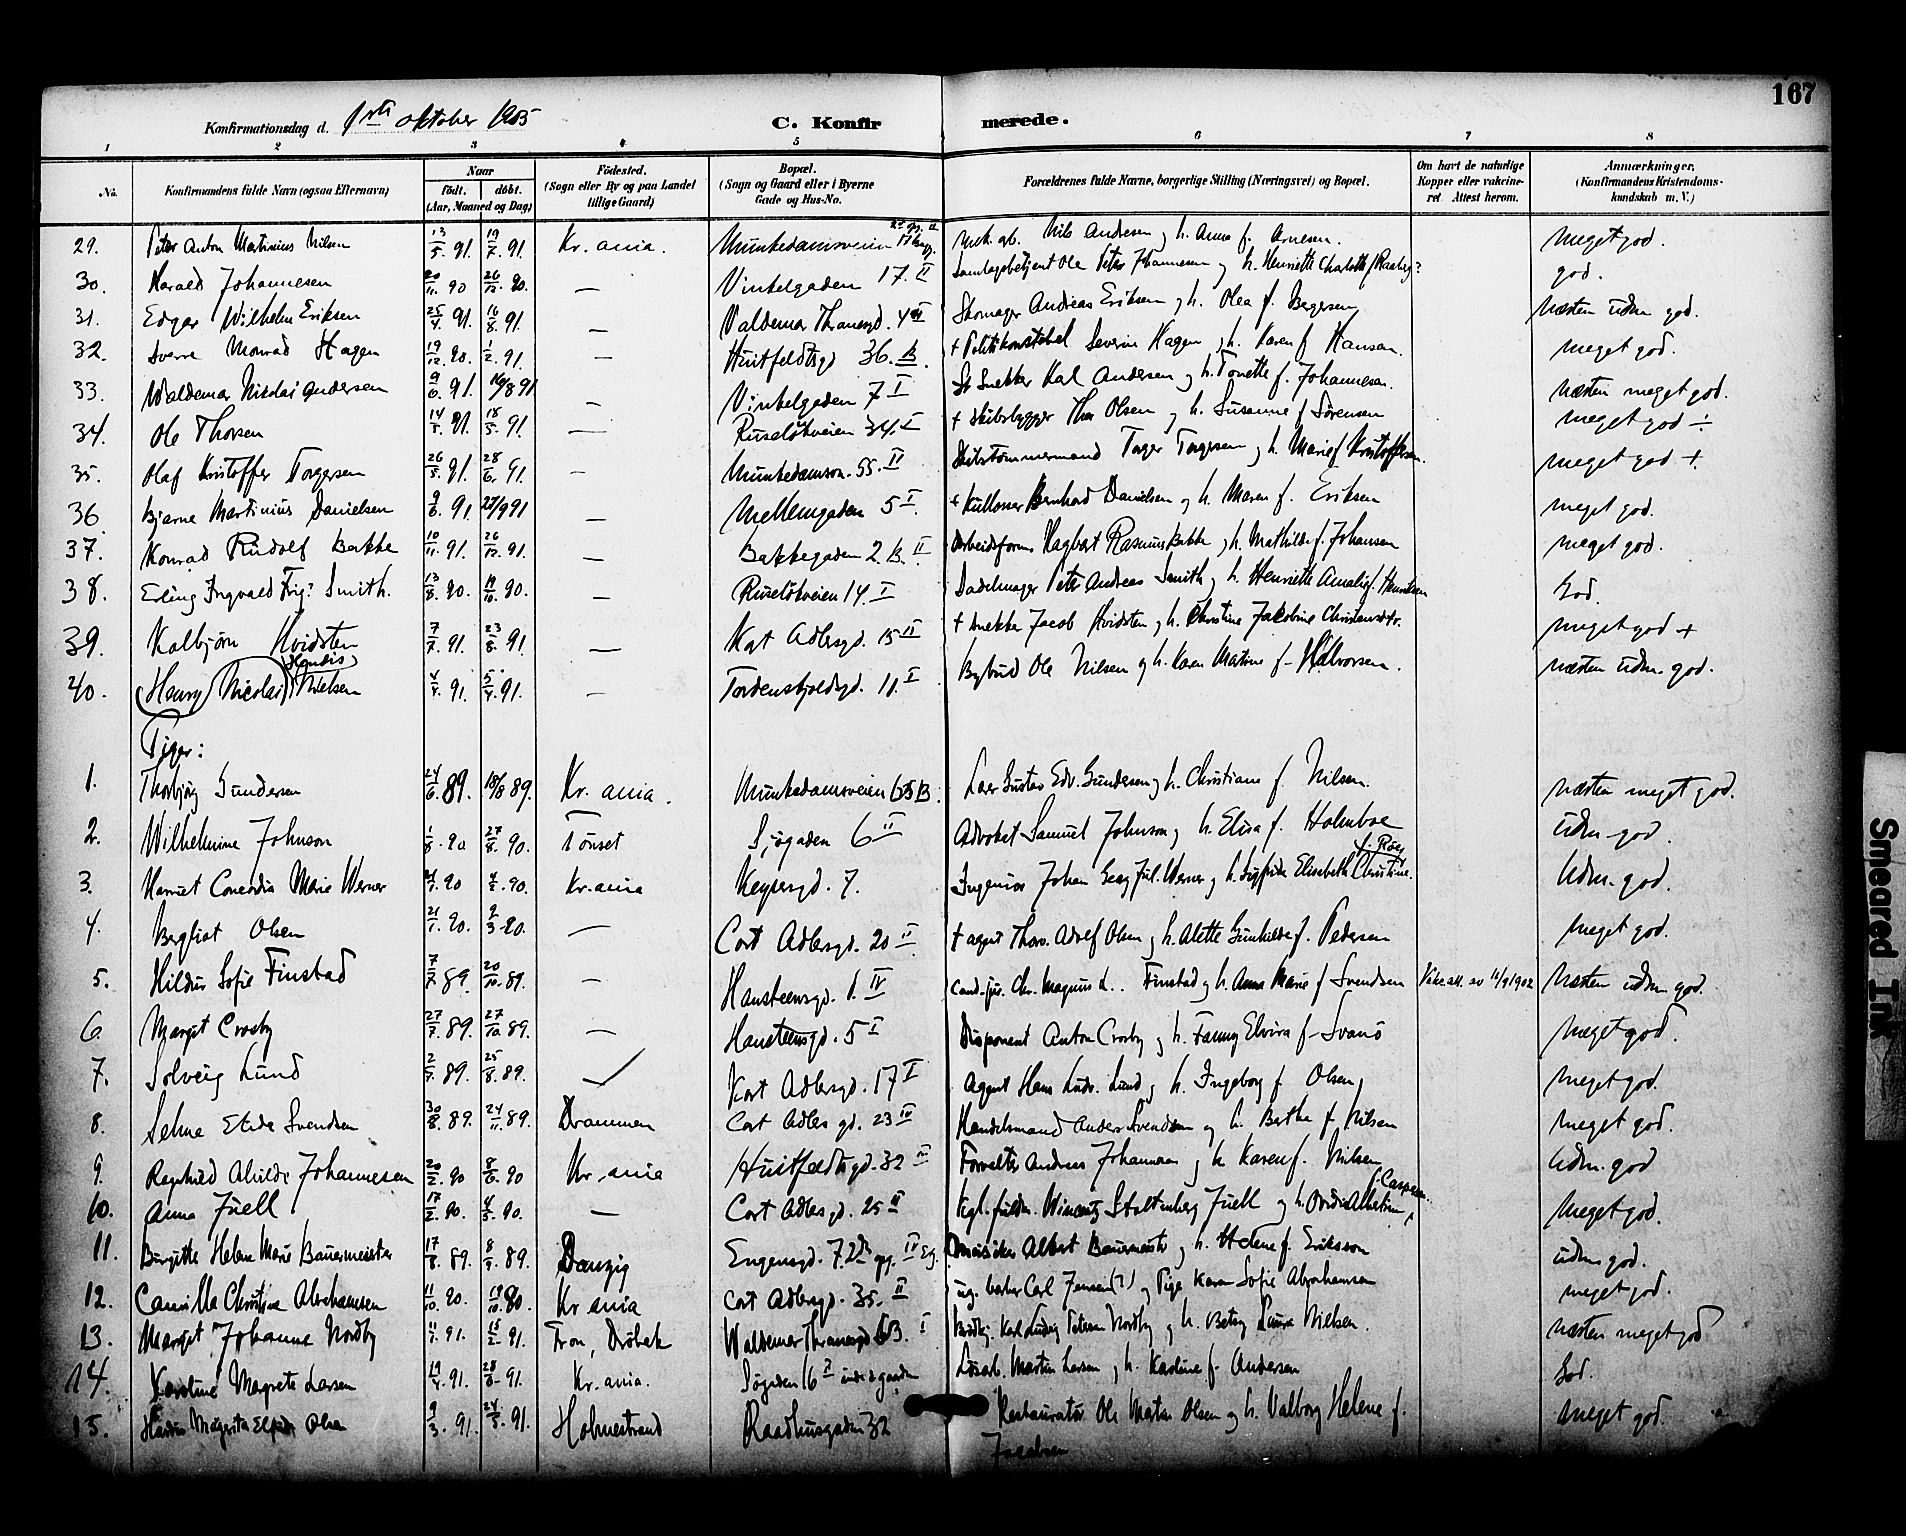 167
Konfirmationsdag d. 1ste oktober 1905 C. Konfirmerede.
1 2 3 4 5 6 7 8
No. Konfirmandens fulde Navn (ogsaa Efternavn) Naar født. døbt. (Aar, Maaned og Dag) Fødested. (Sogn eller By og paa Landet tillige Gaard) Bopæl. (Sogn og Gaard eller i Byerne Gade og Hus-No. Forældrenes fulde Navne, borgerlige Stilling (Næringsvei) og Bopæl. Om havt de naturlige Kopper eller vakcineret. Attest herom. Anmærkninger. (Konfirmandens Kristendomskundskab m. V.)
29. Peter Anton Martinius Nilsen 13/5. 91. 19/7. 91. Kr.ania. Munkedamsveien Nils Andresen og h. Anna f. Arnesen. meget god.
30. Harald Johannesen 20/11. 90 26/12. 90. — Vinkelgaden 17. II Ole Peter Johannesen og h. Henriette Charlotte f. god.
31. Edgar Wilhelm Eriksen 25/4. 91. 16/8. 91. — Valdemar Thranesgd. Skomager Andreas Eriksen og h. Olea f. Bergersen næsten udm. god.
32. Sverre Monrad Hagen 19/12. 90. 1/2. 91. — Huitfeldtsgd 36. B. + Politikonstabel Severin Hagen og h. Karen f. Hansen. meget god.
33. Waldemar Nikolai Andersen 9/6. 91. 16/8 91 — Vinkelgaden 7 I Snekker Karl Andersen og h. Tonette f. Johannesen. næsten meget god.
34. Ole Thorsen 91. 18/5. 91. — Ruseløkveien 34. I + Skibsbygger Thor Olsen og h. Susanne f. Sørensen meget god ÷
35. Olaf Kristoffer Torgersen 26/5. 91. 28/6. 91. — Munkedamsv. 55. II Skibstømmermand Torger Torgersen og h. Marie f. Kristoffersen. meget god +.
36 Bjarne Martinius Danielsen 9/6. 91 27/9 91 — Mellemgaden 5 I. + Bernhard Danielsen og h. Maren f. Eriksen meget god.
37. Konrad Rudolf Bakke 10/11. 91. 26/12. 91. — Bakkegaden 2. B. II Arbeidsform. Hagbart Rasmus Bakke og h. Mathilde f. Johansen meget god.
38. Erling Ingvald Smith. 13/8. 90. 19/10. 90. — Ruseløkveien 14. I Sadelmager Peter Andreas Smith og h. Henriette Amalie f. Henriksen God.
39. Kolbjørn Hvidsten 7/7. 91. 23/8. 91 — Kort Adlersgd. 15 II + Snekker Jacob Hvidsten og h. Christine Jakobine Christensdtr. meget god +
40. (Henry) Nicolai Nielsen 91. 5/4. 91. — Tordenskjoldsgd. 11. I Bybud Ole Nilsen og h. Karen Martine f. Halvorsen. næsten udm. god.
Piger:
1. Thorbjørg Gundersen 24/6. 89. 18/8 89. Kr.ania. Munkedamsveien 65 B. Gustav Edv. Gundersen og h. Christiane f. Nilsen. næsten meget god.
2. Wilhelmine Johnson 1/8. 90 27/8. 90. Tønset Sjøgaden 6 II Advokat Samuel Johnson og h. Elisa f. Holmboe udm. god.
3. Harriet Concordia Marie Werner 90 90. Kr.ania Keysersgd. 7. Ingeniør Johan Georg Jul. Werner og h. Sigfride Elisabeth Christine. udm. god.
4. Bergliot Olsen 21/1. 90. 9/3 90. — Cort Adlersgd. 20 II + agent Thorv. Adolf Olsen og h. Alette Gunhilde f. Pedersen meget god.
5. Hildur Sofie Finstad 7/7 89. 20/10. 89. — Hansteensgd. 1. IV Cand. jur. Chr. Magnus L.. Finstad og h. Anna Marie f. Svendsen næsten udm. god.
6. Margit Crosby 27/7. 89. 27/10 89. — Hansteensgd. 5 I Disponent Anton Crosby og h. Fanny Elvira f. Svanø meget god.
7. Solveig Lund 2/7. 89. 25/8. 89. — Kort Adlersgd. 17 I Agent Hans Ludv. Lund og h. Ingeborg f. Olsen meget god.
8. Selma Svendsen 30/8. 89. 24/11. 89. Drammen Cort Adlersgd. 23 IV Handelsmand Anders Svendsen og h. Berthe f. Nilsen meget god.
9. Ragnhild Alvilde Johannesen 20/2. 90 8/6. 90 Kr.ania Huitfeldtsgd. 32 III Forvalter Andreas Johannesen og h. Karen f. Nilsen udm. god
10. Anna Juell 17/2. 90. 4/5. 90. — Cort Adlersgd. 25 II Kgl. fuldm. Wincentz Stoltenberg Juell og h. f. Caspersen. meget god.
11. Birgitte Helene Marie Bauermeister 17/8. 89. 89. Danzig Engensgd. 7. Musiker Albert Bauermeister og h. Helene f. Eriksson udm. god.
12. Camilla Christine Abrahamsen 11/10. 90. 19/10. 90. Kr.ania Cort Adlersgd. 35. II ug. barber Carl Jensen (?) og Pige Karen Sofie Abrahamsen meget god.
13. Margit Johanne Nordby 91. 15/2. 91. Fron, Drøbak Waldemar Thranesgd 6 B. I Karl Ludvig Petersen Nordby og h. Betsy Laura Nielsen. næsten meget god
14. Karoline Magrete Larsen 19/4. 91. 28/6. 91. Kr.ania. Søgaden 16 I inde i gaarden Løsarb. Martin Larsen og h. Karoline f. Andersen God.
15. Magrita Olsen 9/3. 91. 24/5. 91. Holmestrand Raadhusgaden 32 Restauratør Ole Martin Olsen og h. Valborg Helene f. meget god.
Jacobsen
Smeared Ink